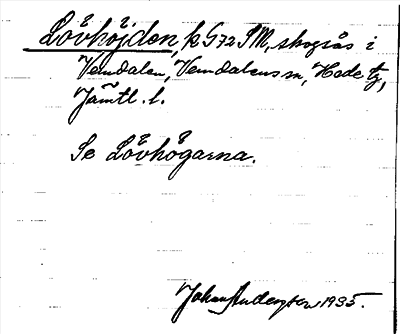 Lövhöjden, k 572 SM, skogsås i
Vemdalen, Vemdalens sn, Hede tg,
Jämtl. l.
Se Lövhögarna.
Johan Anderson 1935.